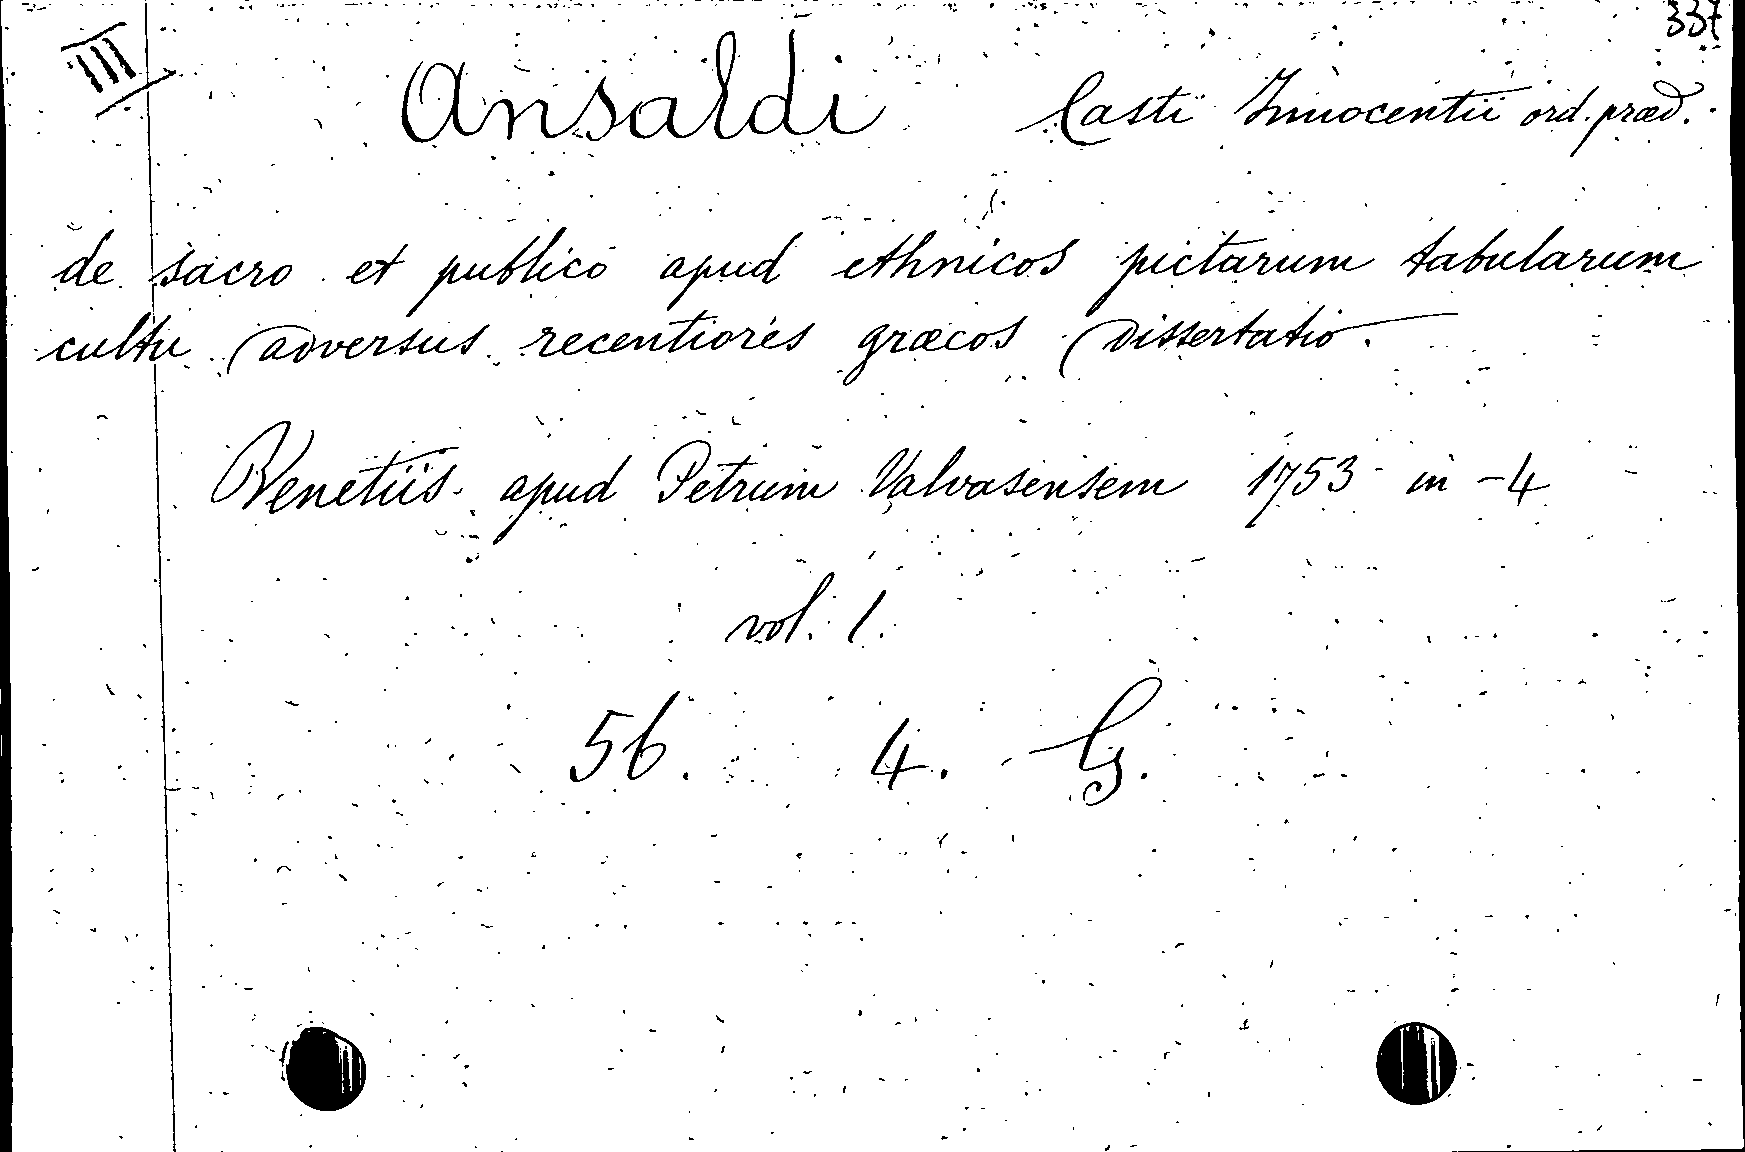 337
III
Ansaldi Casti Innocentii ord. præd.
de sacro et publico apud ethnicos pictarum tabularum
cultu adversus recentiores græcos Dissertatio.
Venetiis apud Petrum Valvasensem 1753 in-4
vol. 1.
56. 4. G.